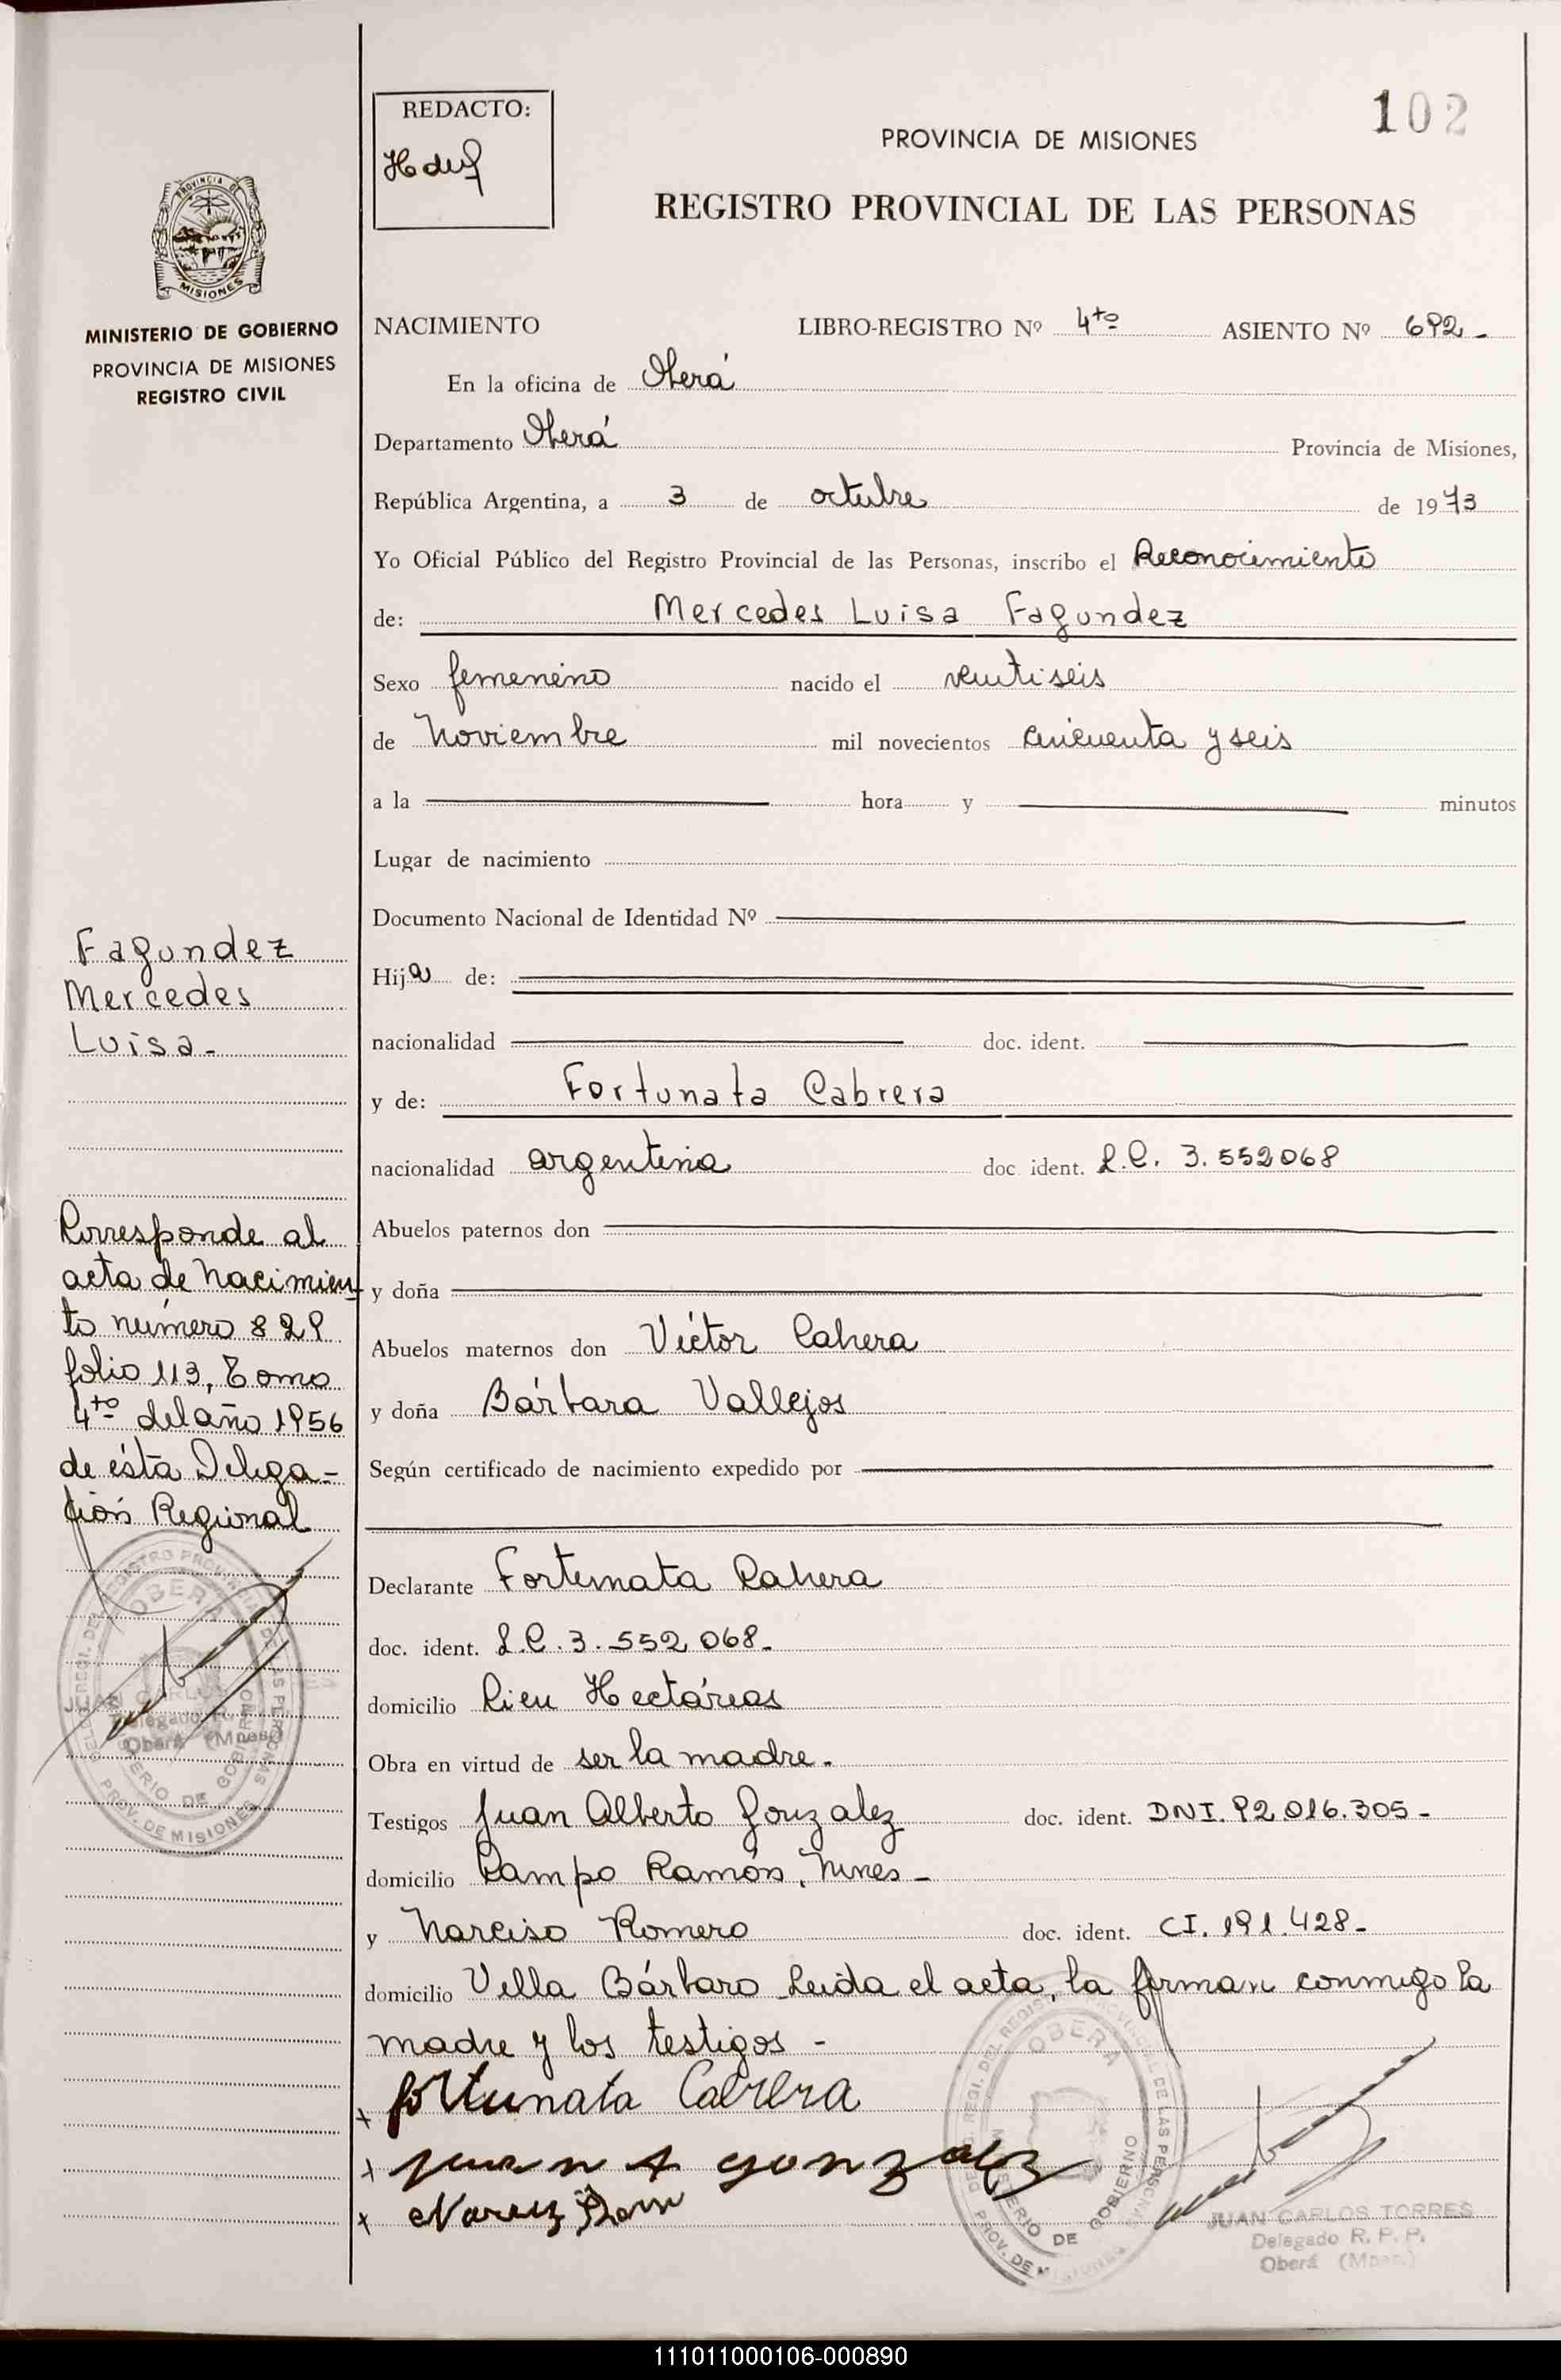 102
REDACTO:
PROVINCIA DE MISIONES
REGISTRO PROVINCIAL DE LAS PERSONAS
PROVINCIA DE
MISIONES
MINISTERIO DE GOBIERNO
PROVINCIA DE MISIONES
REGISTRO CIVIL
NACIMIENTO LIBRO-REGISTRO Nº 4to ASIENTO Nº 692-
En la oficina de Oberá
Departamento Oberá Provincia de Misiones,
República Argentina, a 3 de octubre de 1973
Yo Oficial Público del Registro Provincial de las Personas, inscribo el Reconocimiento
de: Mercedes Luisa Fagundez
Sexo femenino nacido el veintiseis
de Noviembre mil novecientos cincuenta y seis
a la hora y minutos
Lugar de nacimiento
Documento Nacional de Identidad Nº
Hija de:
nacionalidad doc. ident.
y de: Fortunata Cabrera
nacionalidad argentina doc. ident. L.C. 3.552068
Abuelos paternos don
y doña
Abuelos maternos don Víctor Cabrera
y doña Bárbara Vallejos
Según certificado de nacimiento expedido por
Declarante Fortunata Cabrera
doc. ident. L.C. 3.552.068-
domicilio Cien Hectáreas
Obra en virtud de ser la madre.
Testigos Juan Alberto Gonzalez doc. ident. DNI. 92.016.305-
domicilio Campo Ramón, Mnes-
y Narciso Romero doc. ident. CI. 191.428-
domicilio Villa Bárbaro Leida el acta, la firman conmigo la
madre y los testigos -
x fortunata Cabrera
x juan A gonzalez
x
Fagundez
Mercedes
Luisa-
Corresponde al
acta de Nacimien-
to número 829
folio 113, Tomo
4to del año 1956
de ésta Delega-
ción Regional
OBERA
JUAN CARLOS
Delegado
Oberá (Mnes)
PROV. DE MISIONES
OBERA
DE GOBIERNO
PROV. DE MISIONES
JUAN CARLOS TORRES
Delegado R. P. P.
Oberá (Mnes.)
111011000106-000890